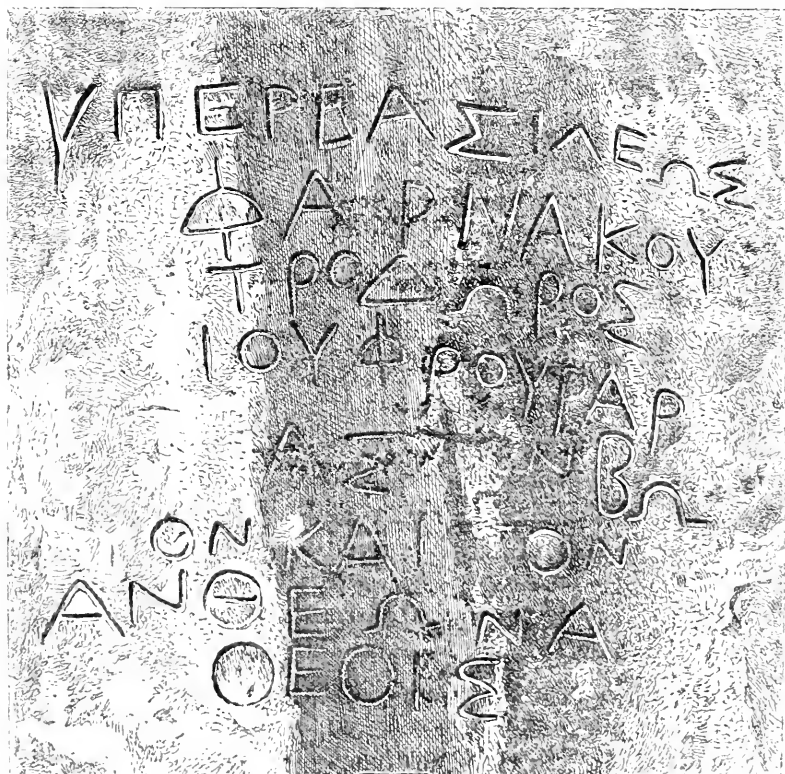 ΥΠΕΡΒΑΣΙΛΕΩΣ
ΦΑΡΝΑΚΟΥ
ΤΡΟΔΩΡΟΣ
ΙΟΥΦΡΟΥΡΑΡ
ΑΣ Τ Ν ΒΩ
ΟΝ ΚΑΙ ΤΟΝ
ΑΝΘΕΩΝΑ
ΘΕΟΙΣ